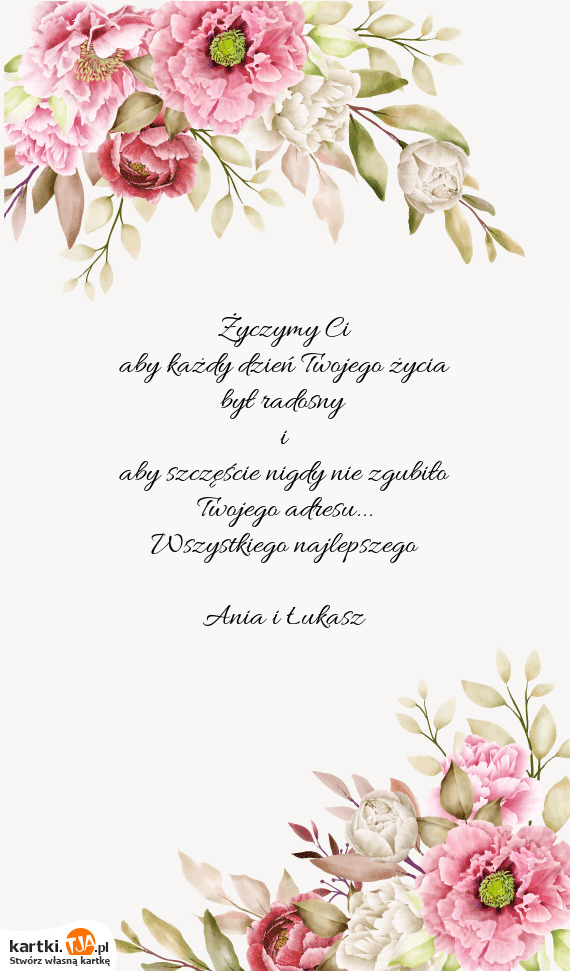 Życzymy Ci
aby każdy dzień Twojego życia
był radosny
i
aby szczęście nigdy nie zgubiło
Twojego adresu...
Wszystkiego najlepszego
Ania i Łukasz
kartki.TJA.pl
Stwórz własną kartkę